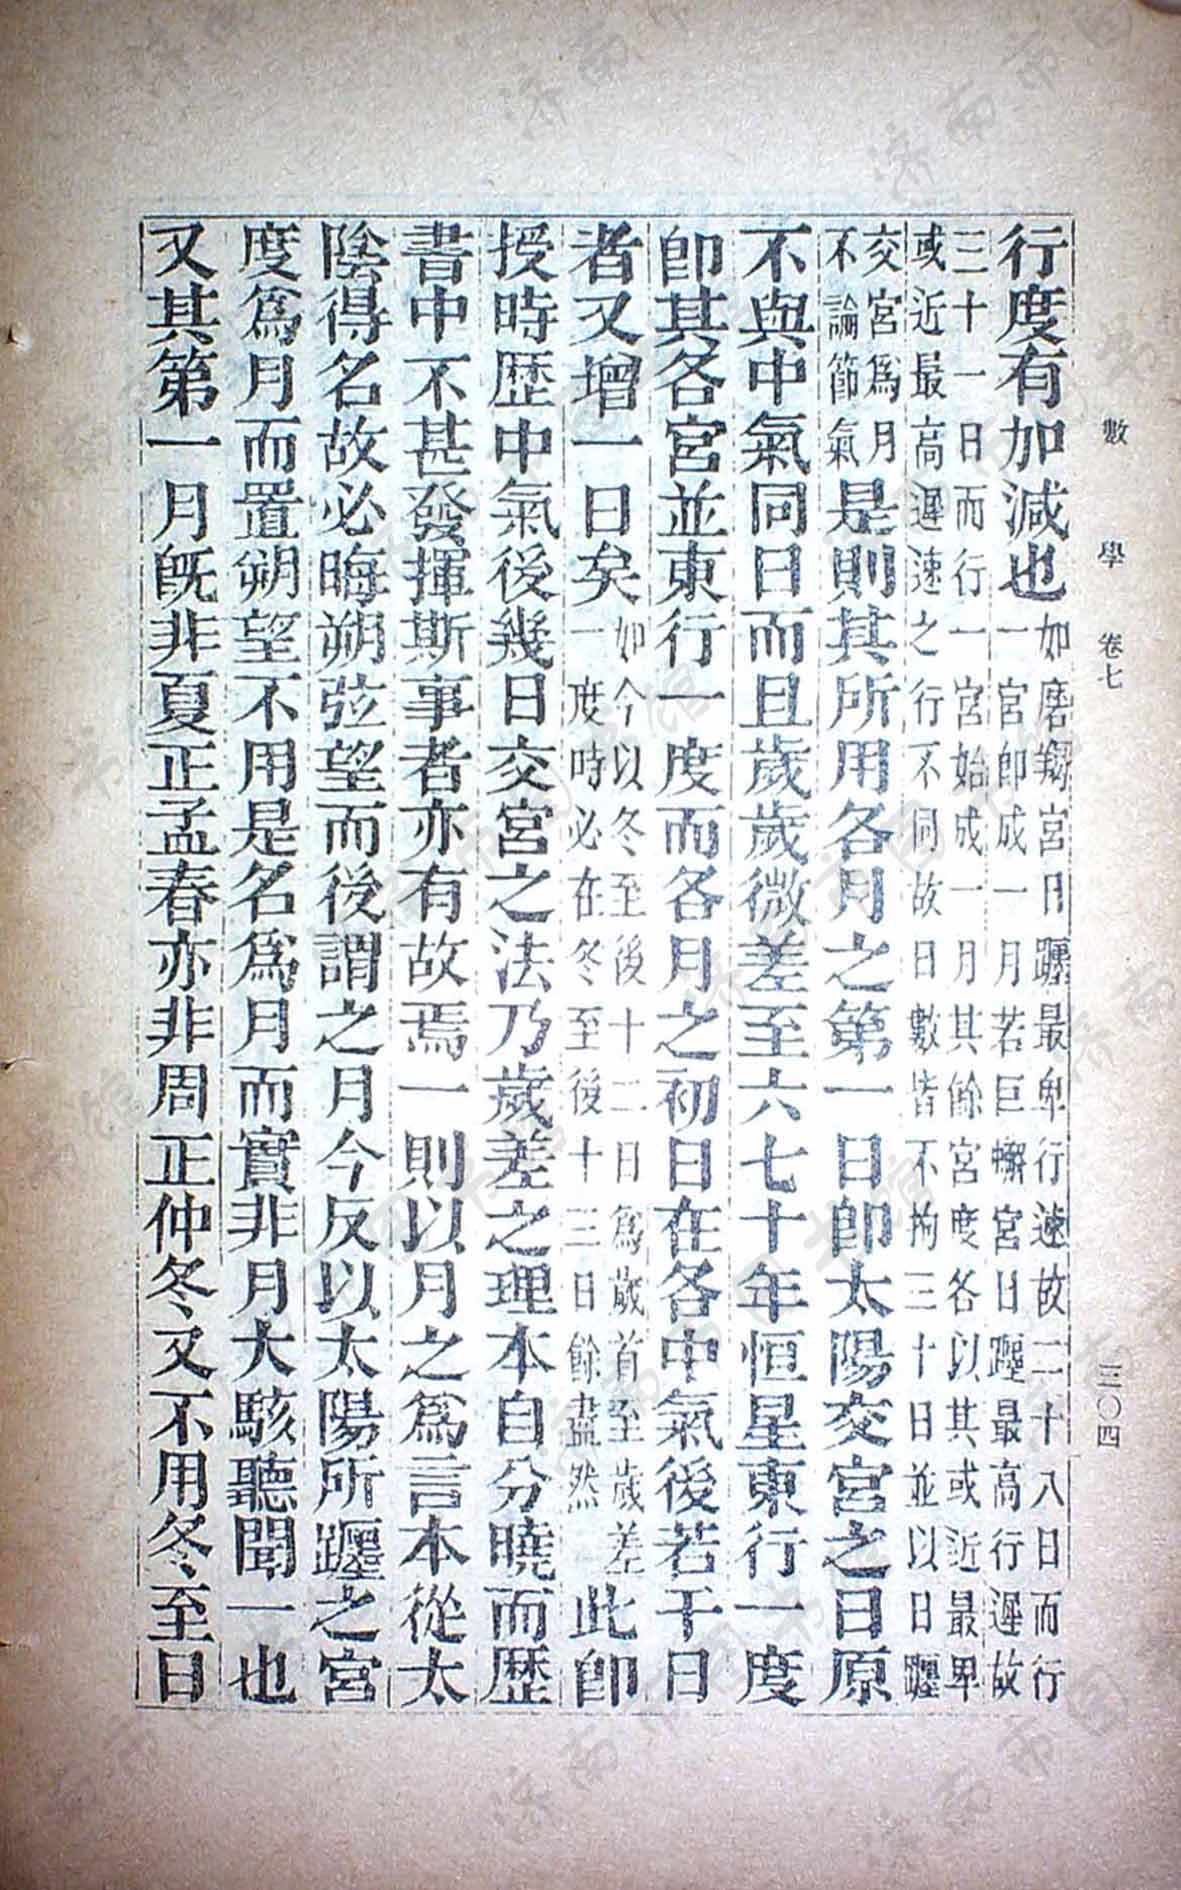 數學 卷七 三〇四
行度有加減也如磨羯宮日躔最卑行速故二十八日而行
一宮卽成一月若巨蠏宮日躔最高行遲故
三十一日而行一宮始成一月其餘宮度各以其或近最卑
或近最高遲速之行不同故日數皆不拘三十日並以日躔
交宮爲月
不論節氣
是則其所用各月之第一日卽太陽交宮之日原
不與中氣同日而且歲歲微差至六七十年恒星東行一度
卽其各宮並東行一度而各月之初日在各中氣後若干日
者又增一日矣
如今以冬至後十二日爲歲首至歲差
一度時必在冬至後十三日餘盡然
此卽
授時歷中氣後幾日交宮之法乃歲差之理本自分曉而歷
書中不甚發揮斯事者亦有故焉一則以月之爲言本從太
陰得名故必晦朔弦望而後謂之月今反以太陽所躔之宮
度爲月而置朔望不用是名爲月而實非月大駭聽聞一也
又其第一月旣非夏正孟春亦非周正仲冬又不用冬至日
济南市图书馆